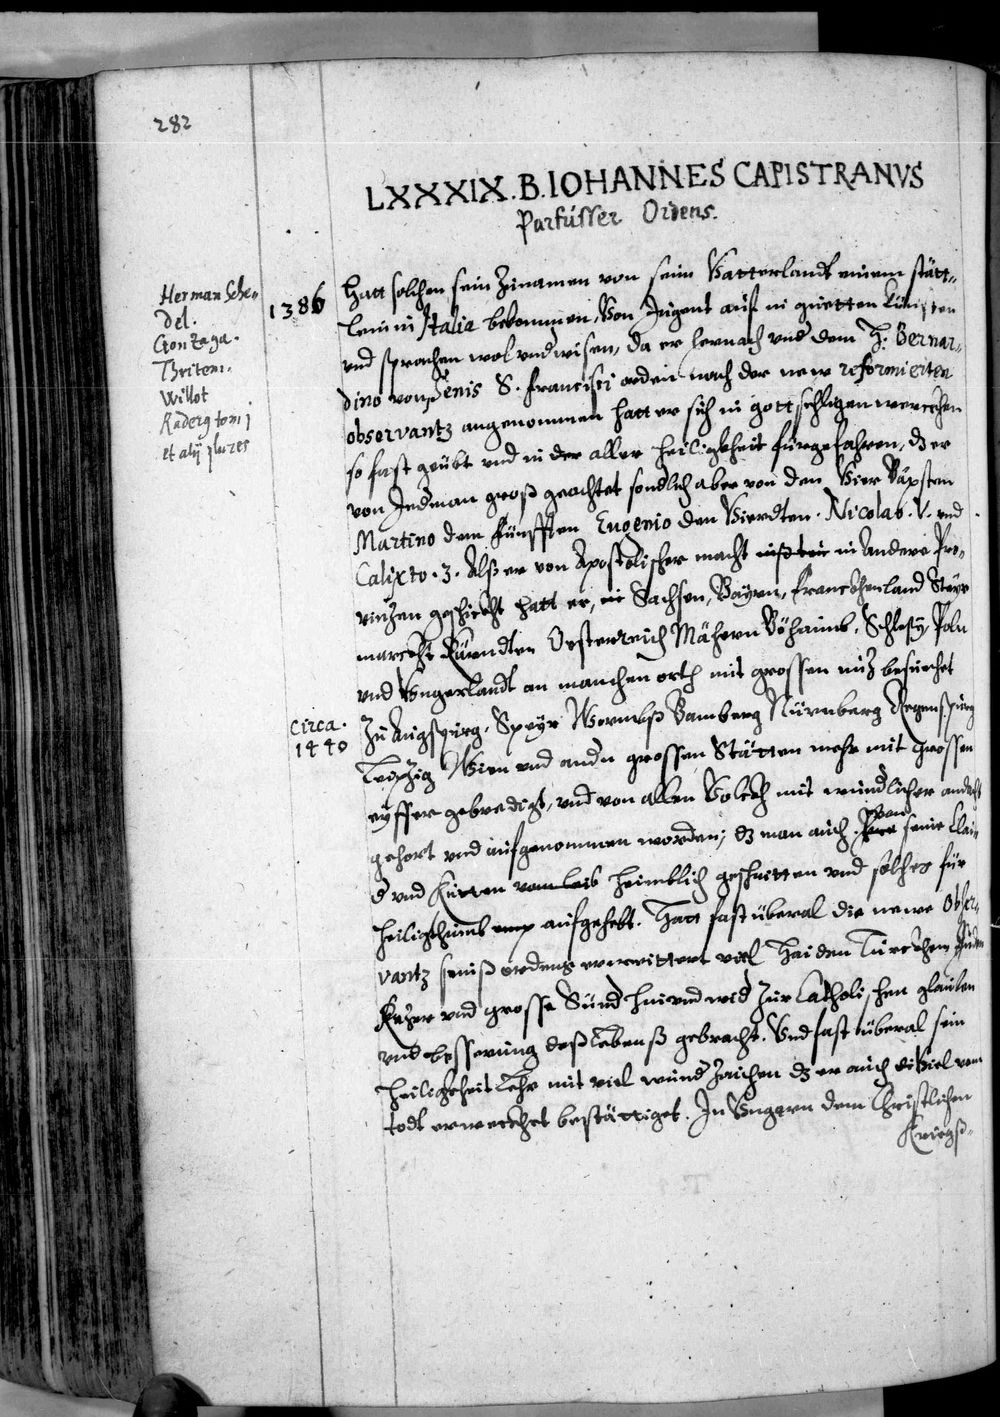 282
LXXXIX. B. IOHANNES CAPISTRANVS
Parfüsser Ordens.
Herman Sche-
del.
Gonzaga.
Tritem.
Willot
Raderg tom j
et alij plures
1386
hatt solchen sein Zunamen von seim Vatterlandt einem stätt-
lein in Italia bekommen, Von Jugent auff in guetten künsten
und sprachen wol underwisen, da er hernach under dem H. Bernar-
dino von Senis S. Francisci orden nach der new reformierten
observantz angenommen hatt er sich in gottseligen werckhen
so fast geübt und in der aller heiligkheit fürgefahren, dz er
von Jedman groß geachtet sondlich aber von den Vier Bäpsten
Martino dem Fünfften Eugenio den Vierdten. Nicolao. V. und
Calixto. 3. Alß er von Apostolischer macht in andere Pro-
vinzen geschickht hatt er, in Sachsen, Bayrn, Franckhenland Steyr
marckht Kärndten Oesterreich Mähern Böhaimb. Schlesy, Poln
und Ungerlandt an manchen orth mit grossen nuz besuechet
circa.
1440
Zu Augspurg, Speyr Wormbß Bamberg Nürnberg Regenspurg
Leipzig Wien und andn grossen Stätten mehr mit grossen
eyffer gebredigt, und von allen Volckh mit wundlicher andacht
gehort und aufgenommen worden; dz man auch von seine klai-
d und Kutten vom leib heimblich geschnitten und solches für
heiligthumb aufgehebt. Hatt fast überal die newe Obser-
vantz seinß ordens erweittert viel Haiden Türckhen Juden
Kezer und grosse Sünd hin und wid zur Catholischen glauben
und besserung deß lebenß gebracht. Und fast überal sein
heiligkheit lehr mit viel wund zaichen dz er auch viel vom
todt erweckhet bestättiget. In Ungarn dem Christlichen
Kriegß-